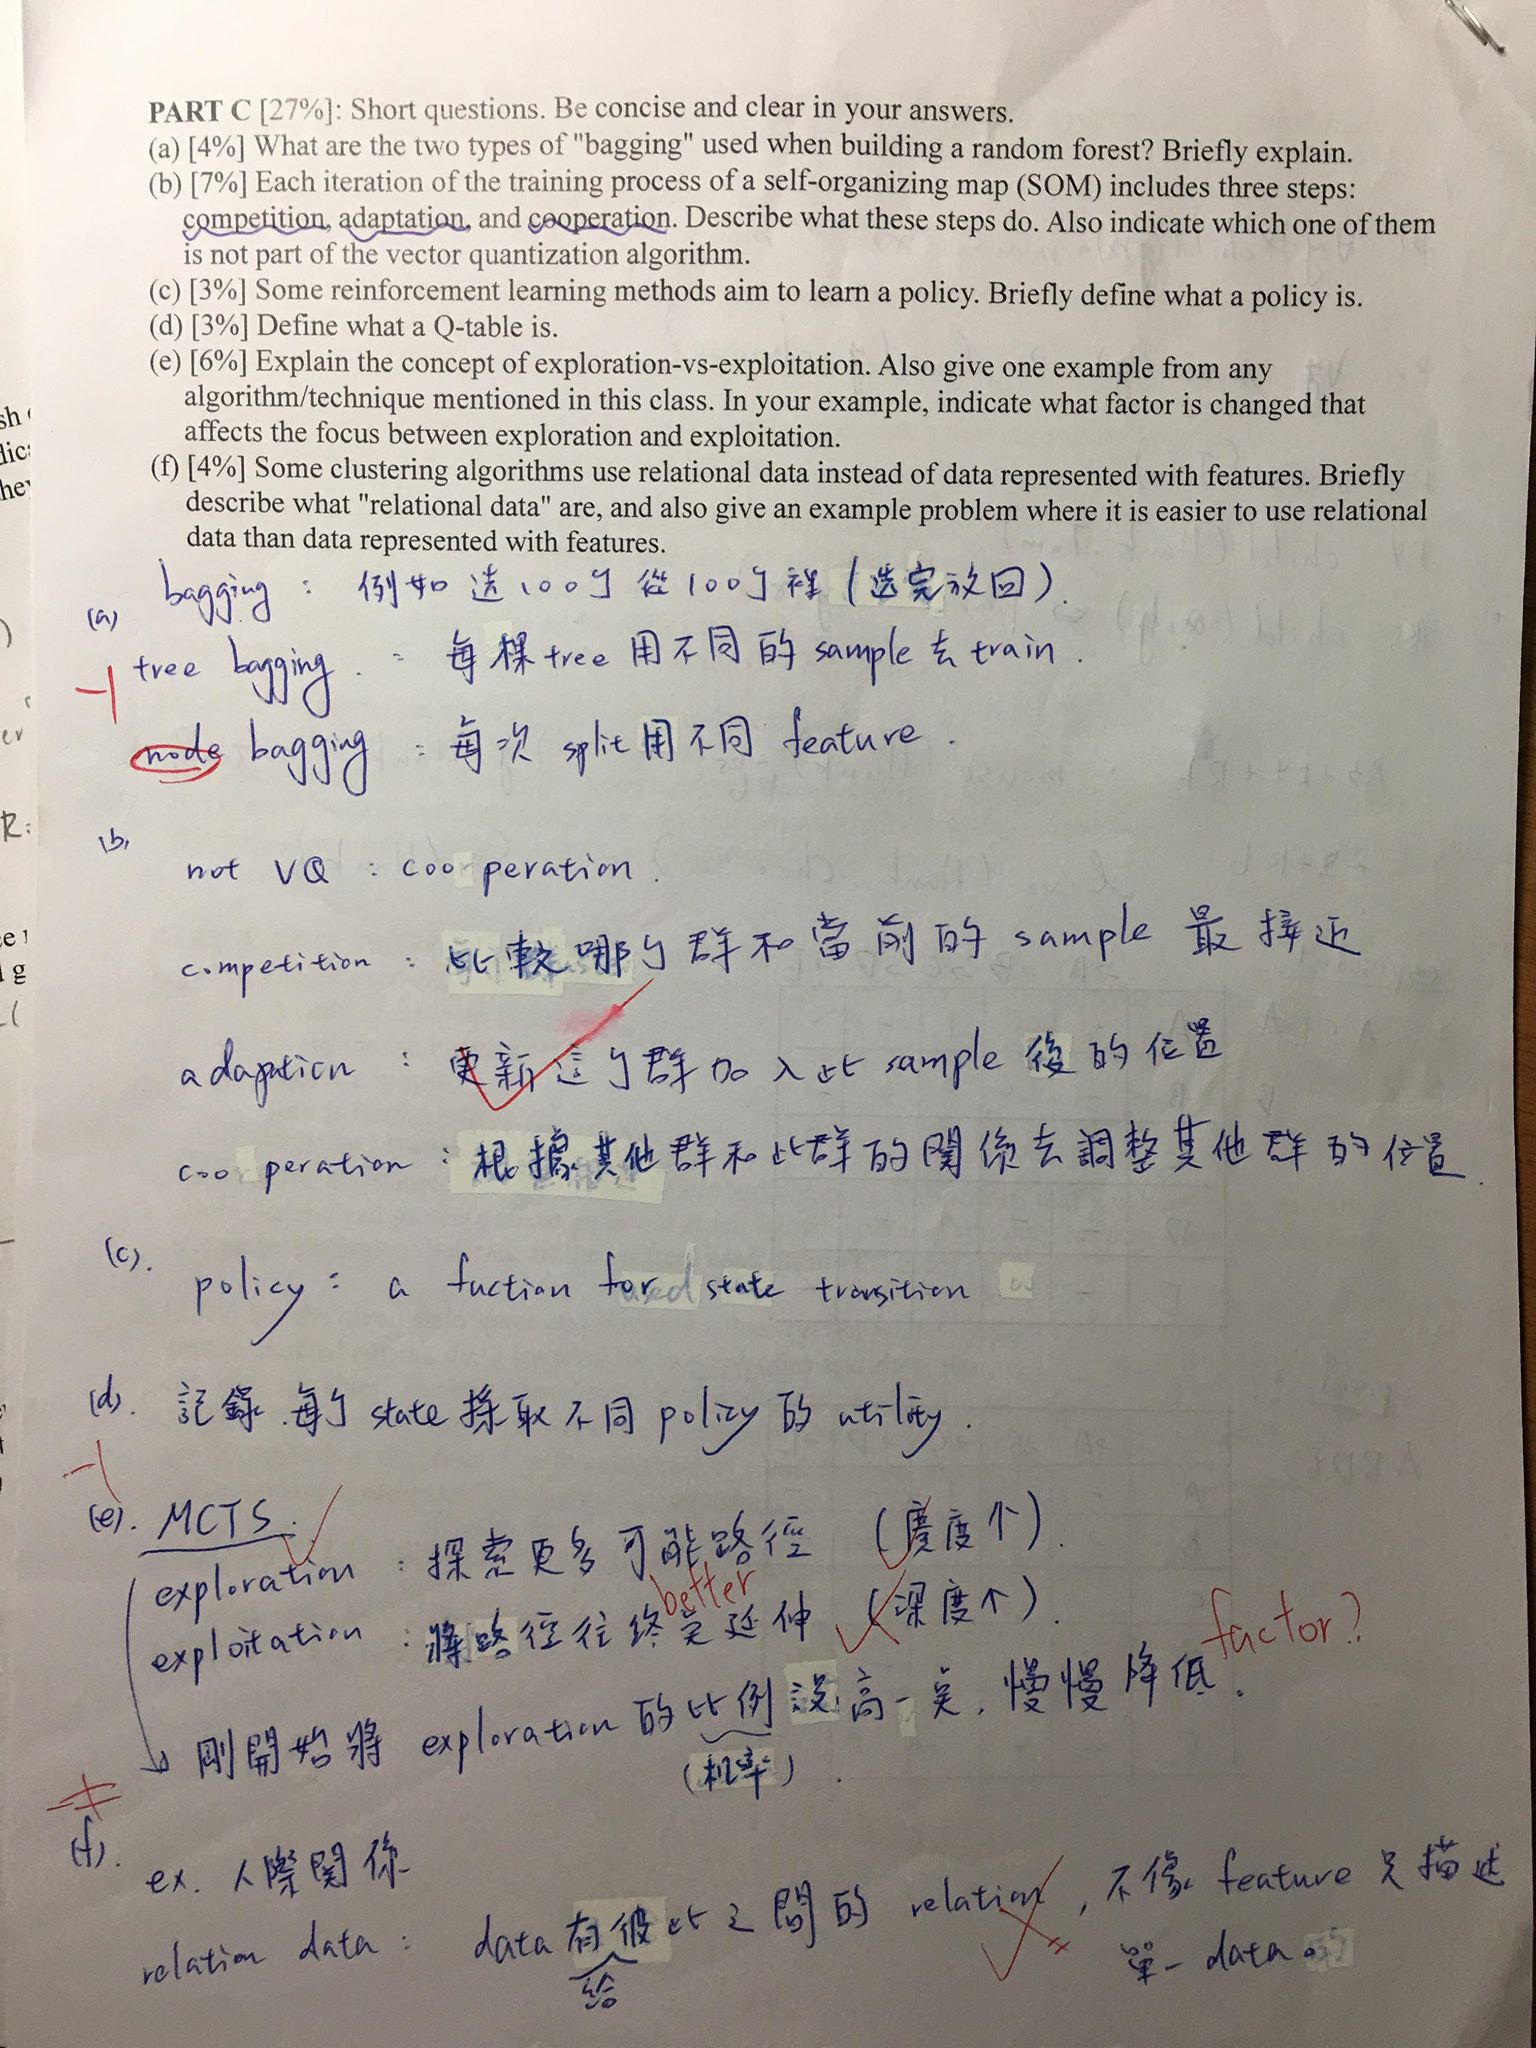 PART C [27%]: Short questions. Be concise and clear in your answers.
(a) [4%] What are the two types of "bagging" used when building a random forest? Briefly explain.
(b) [7%] Each iteration of the training process of a self-organizing map (SOM) includes three steps:
competition, adaptation, and cooperation. Describe what these steps do. Also indicate which one of them
is not part of the vector quantization algorithm.
(c) [3%] Some reinforcement learning methods aim to learn a policy. Briefly define what a policy is.
(d) [3%] Define what a Q-table is.
(e) [6%] Explain the concept of exploration-vs-exploitation. Also give one example from any
algorithm/technique mentioned in this class. In your example, indicate what factor is changed that
affects the focus between exploration and exploitation.
(f) [4%] Some clustering algorithms use relational data instead of data represented with features. Briefly
describe what "relational data" are, and also give an example problem where it is easier to use relational
data than data represented with features.
(a) bagging : 例如選100个從100个裡 (选完放回).
tree bagging : 每棵tree用不同的sample去train.
-1
node bagging : 每次split用不同feature.
(b) not VQ : cooperation.
competition : 比較哪个群和當前的sample最接近
adaption : 更新這个群加入此sample後的位置
cooperation : 根據其他群和此群的關係去調整其他群的位置.
(c). policy : a fuction for state transition
(d). 記錄每个state採取不同policy的utility.
-1
(e). MCTS.
exploration : 探索更多可能路徑 (廣度个).
better
exploitation : 將路徑往終点延伸 (深度个).
factor?
剛開始將exploration的比例設高一点, 慢慢降低.
(机率)
(f). ex. 人際關係
relation data : data有彼此之間的relation, 不像feature只描述
給
單一data